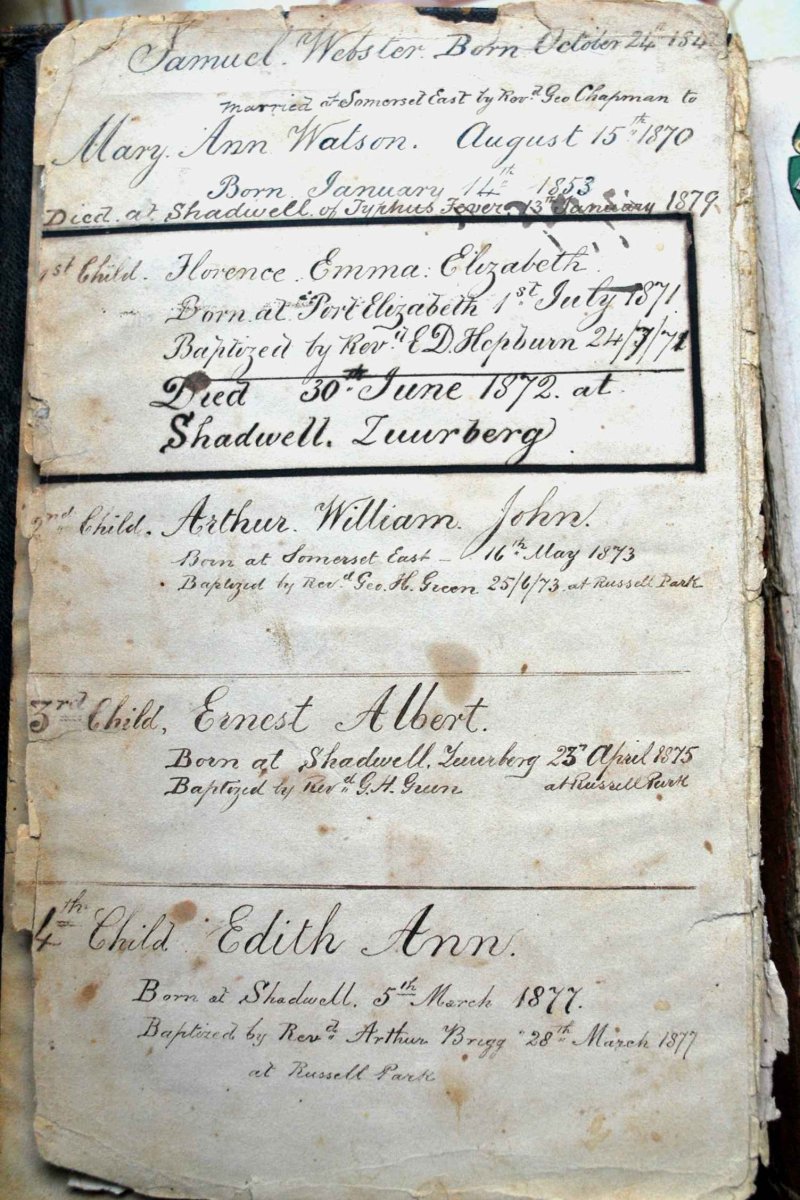 Samuel. Webster. Born October 24th
married at Somerset East by Revd. Geo Chapman to
Mary. Ann Watson. August 15th 1870
Born January 14th 1853
Died at Shadwell of Typhus Fever. 13th January 1879
1st Child. Florence. Emma: Elizabeth
Born at Port Elizabeth 1st July 1871
Baptized by Revd E D. Hepburn 24/7/71
Died 30th June 1872. at
Shadwell. Zuurberg
2nd Child. Arthur. William. John.
Born at Somerset East – 16th May 1873
Baptized by Revd Geo. H. Green 25/6/73 at Russell Park
3rd Child, Ernest Albert.
Born at Shadwell. Zuurberg 23rd April 1875
Baptized by Revd G. H. Green at Russell Park
4th Child Edith Ann.
Born at Shadwell. 5th March 1877.
Baptized by Revd Arthur Brigg 28th March 1877
at Russell Park